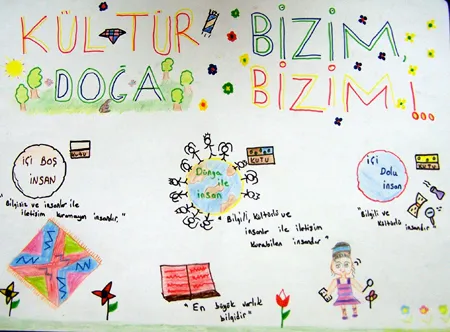 KÜLTÜR BİZİM,
DOĞA BİZİM!...
İÇİ BOŞ
İNSAN
KUTU
"Bilgisiz ve insanlar ile
iletişim kuramayan insandır."
Dünya
ile
insan
KUTU
"Bilgili, kültürlü ve
insanlar ile iletişim
kurabilen insandır"
İÇİ
Dolu
insan
KUTU
"Bilgili ve kültürlü insandır"
"En büyük varlık
bilgidir"